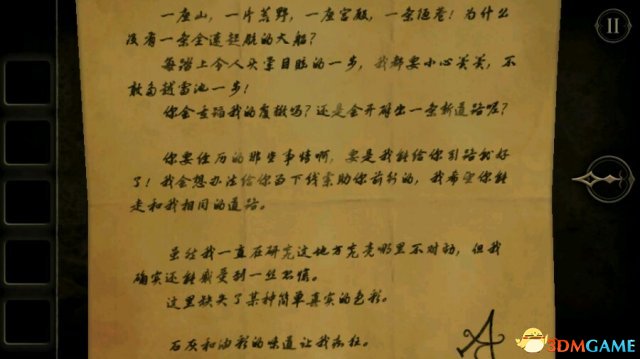 一座山，一片荒野，一座宫殿，一条陋巷！为什么
没有一条全速起航的大船？
每踏上令人头晕目眩的一步，我都要小心翼翼，不
敢逾越雷池一步！
你会重蹈我的覆辙吗？还是会开辟出一条新道路呢？
你要经历的那些事情啊，要是我能给你引路就好
了！我会想办法给你留下线索助你前行的，我希望你能
走和我相同的道路。
虽然我一直在研究这地方究竟哪里不对劲，但我
确实还能感受到一丝
这里缺失了某种简单真实的色彩。
石灰和油彩的味道让我
A
3DMGAME